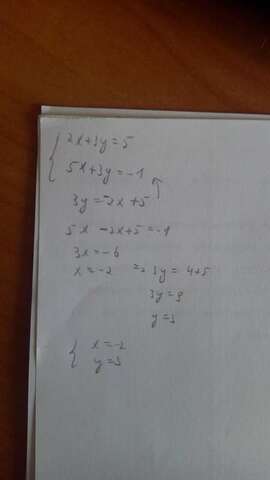 2x+3y=5
5x+3y=-1
3y=-2x+5
5x -2x+5=-1
3x=-6
x=-2 => 3y=4+5
3y=9
y=3
x=-2
y=3